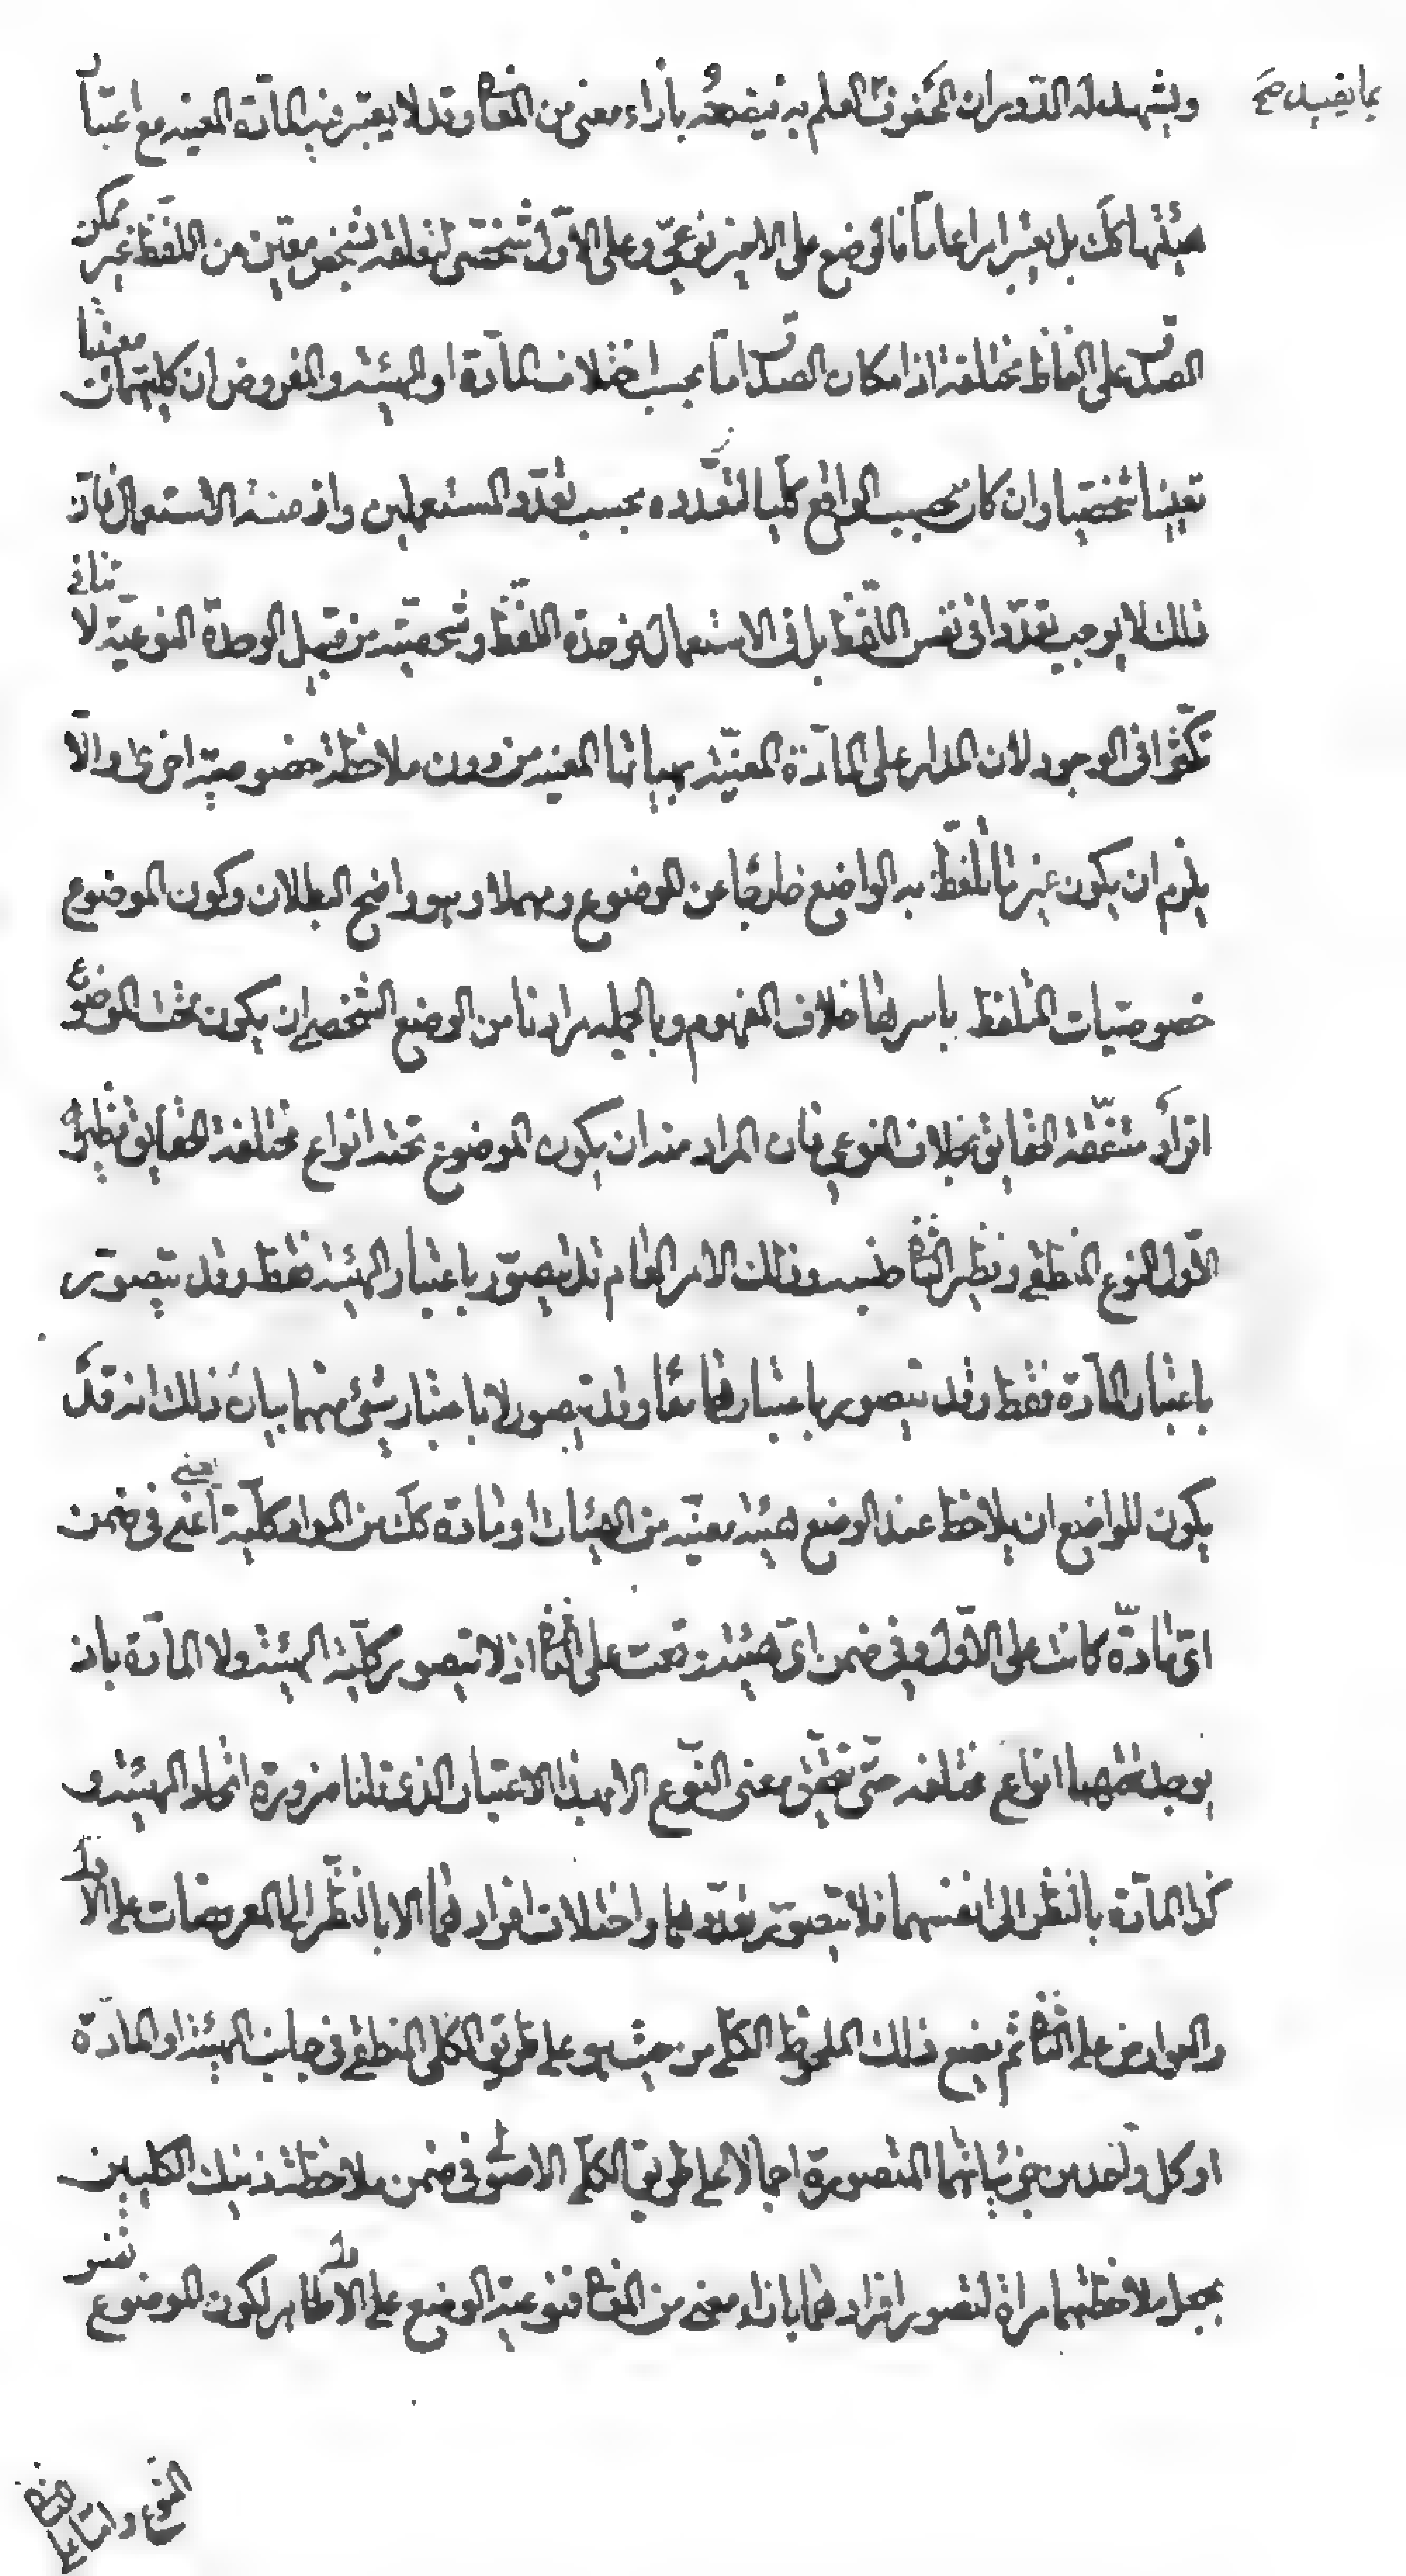 بما يفيد صح
ويشهد له الدوران المحفوف العلم به فيضعه بأزاء معنى من المعا وقد لا يعتبر فيه المادة المعينه مع اعتبار
هيئتها كك بل يعتبر امرا عاما فالوضع على الاخير نوعي وعلى الاول شخصى لتعلقه بشخص معين من اللفظ غير ممكن
الصدق على الفاظ مختلفة اذ امكان الصدق اما بحسب اختلاف المادة او الهيئة والمفروض ان كليتهما معينتان
تعينا شخصيا وان كان بحسب الواقع كليا لتعدده بحسب تعدد المستعملين وازمنة الاستعمال فان
ذلك لا يوجب تعددا فى نفس اللفظ بل فى الاستعمال فوحدة اللفظ وشخصيته من قبيل الوحدة النوعية لا تنافى
تكثرا فى الوجود لان المدار على المادة المعينة بهيأتها المعينه من دون ملاحظة خصوصية اخرى والا
يلزم ان يكون غير ما تلفظ به الواضع خارجا عن الموضوع ومهملا وهو واضح البطلان وكون الموضوع
خصوصيات المتلفظ باسرها خلاف المفهوم وبالجمله مرادنا من الوضع الشخصى ان يكون تحت الموضوع
افراد متفقة الحقايق بخلاف النوعي فان المراد منه ان يكون الموضوع تحته انواع مختلفة الحقايق فنظير
الاول النوع المنطقى ونظير الثا جنسه وذلك الامر العام قد يتصور باعتبار الهيئة فقط وقد يتصور
باعتبار المادة فقط وقد يتصور باعتبارهما معا وقد يتصور لا باعتبار شئ منهما بيان ذلك انه قد
يكون للواضع ان يلاحظ عند الوضع هيئة معينه من الهيئات او مادة كك من المواد كلية اعنى فى ضمن
اى مادة كانت على الاول وفى ضمن اى هيئة وقعت على الثا اذ لا يتصور كلية الهيئة ولا المادة بان
يوجد تحتهما انواع مختلفه حتى يتحقق معنى النوع الا بهذا الاعتبار الذى قلنا ضرورة اتحاد الهيئة و
كذا المادة بالنظر الى انفسهما فلا يتصور تعددهما واختلاف افرادهما الا بالنظر الى المعروضات على الاول
والعوارض على الثا ثم يضع ذلك الملحوظ الكلى من حيث هو على طريق الكلى المنطقى فى جانب الهيئة او المادة
او كل واحد من جزئياتهما المتصورة اجمالا على طريق الكلى الاصولى فى ضمن ملاحظة ذينك الكليين
بجعل ملاحظتهما مراة لتصور افرادهما بازاء معنى من المعا فنوعية الوضع على الاول ظاهر لكون الموضوع نفس
النوع واما على